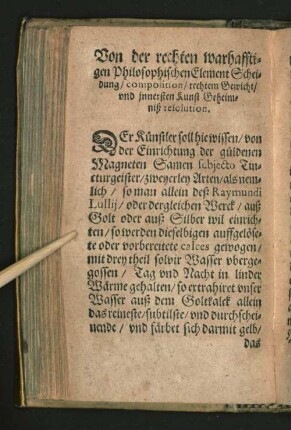 Von der rechten warhaffti-
gen Philosophischen Element Schei-
dung / composition / rechtem Gewicht /
vnd jnnersten Kunst Geheim-
niß resolution.
DEr Künstler soll hie wissen / von
der Einrichtung der güldenen
Magneten Samen subjecto Tin-
cturgeister / zweyerley Arten / als nem-
lich / so man allein deß Raymundi
Lullij / oder dergleichen Werck / auß
Golt oder auß Silber wil einrich-
ten / so werden dieselbigen auffgelöse-
te oder vorbereitete calces gewogen /
mit drey theil solvir Wasser vberge-
gossen / Tag vnd Nacht in linder
Wärme gehalten / so extrahiret vnser
Wasser auß dem Goltkalck allein
das reineste / subtilste / vnd durchschei-
nende / vnd färbet sich darmit gelb /
das